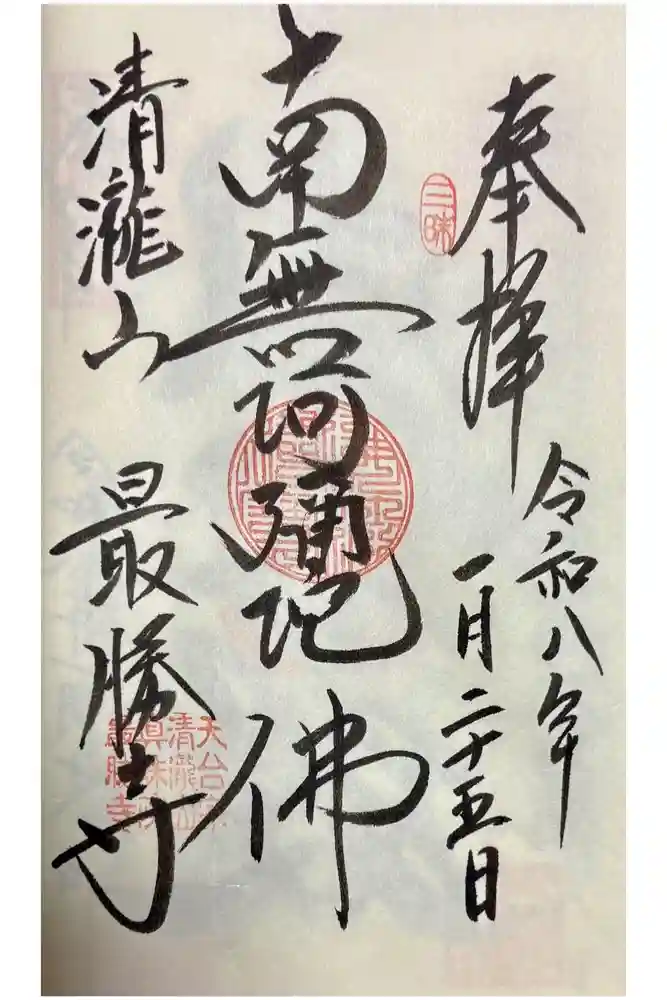 奉拝
令和八年
一月二十五日
三昧
南無阿彌陀佛
清瀧山
最勝寺
天台宗
清瀧山
真珠院
最勝寺